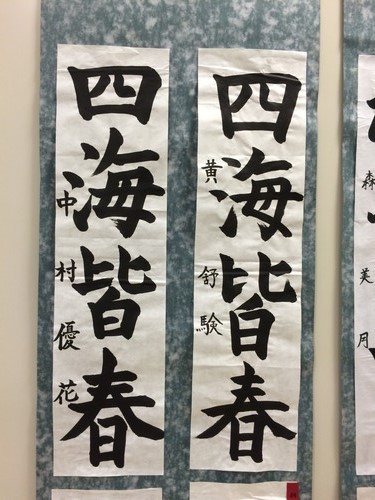 四海皆春
黄舒験
四海皆春
中村優花
森美月